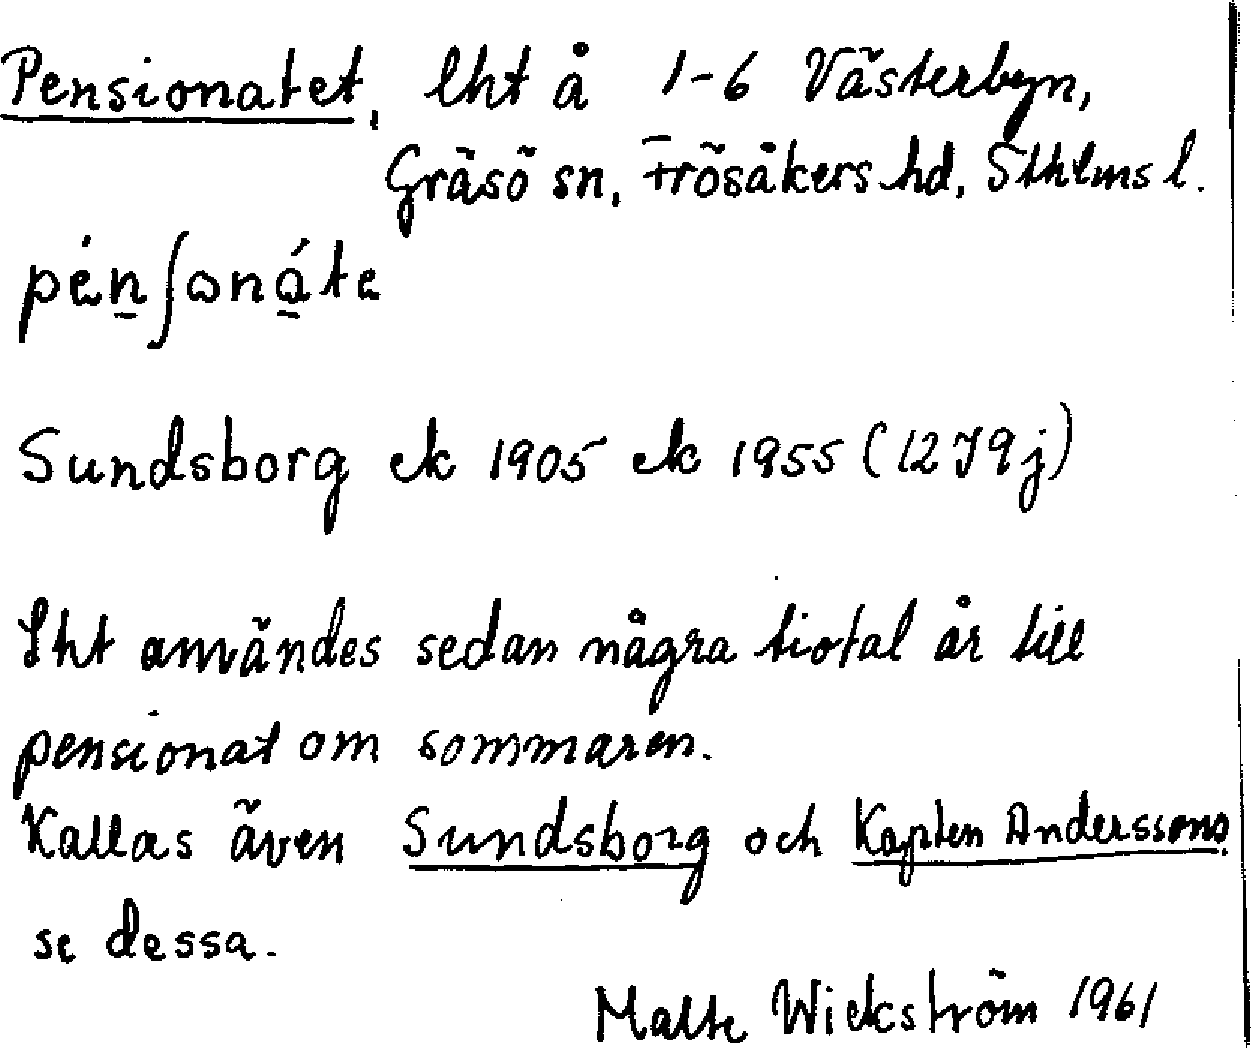 Pensionatet, lht å 1-6 Västerbyn,
Gräsö sn, Frösåkers hd, Sthlms l.
pénʃωná̱te
Sundsborg ek 1905 ek 1955 (12I9j)
Lht användes sedan några tiotal år till
pensionat om sommaren.
Kallas även Sundsborg och Kapten Anderssons.
se dessa.
Malte Wickström 1961